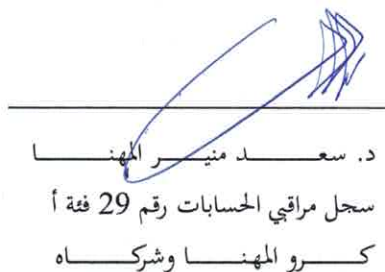 د. سعد منير المهنا
سجل مراقبي الحسابات رقم 29 فئة أ
كرو المهنا وشركاه